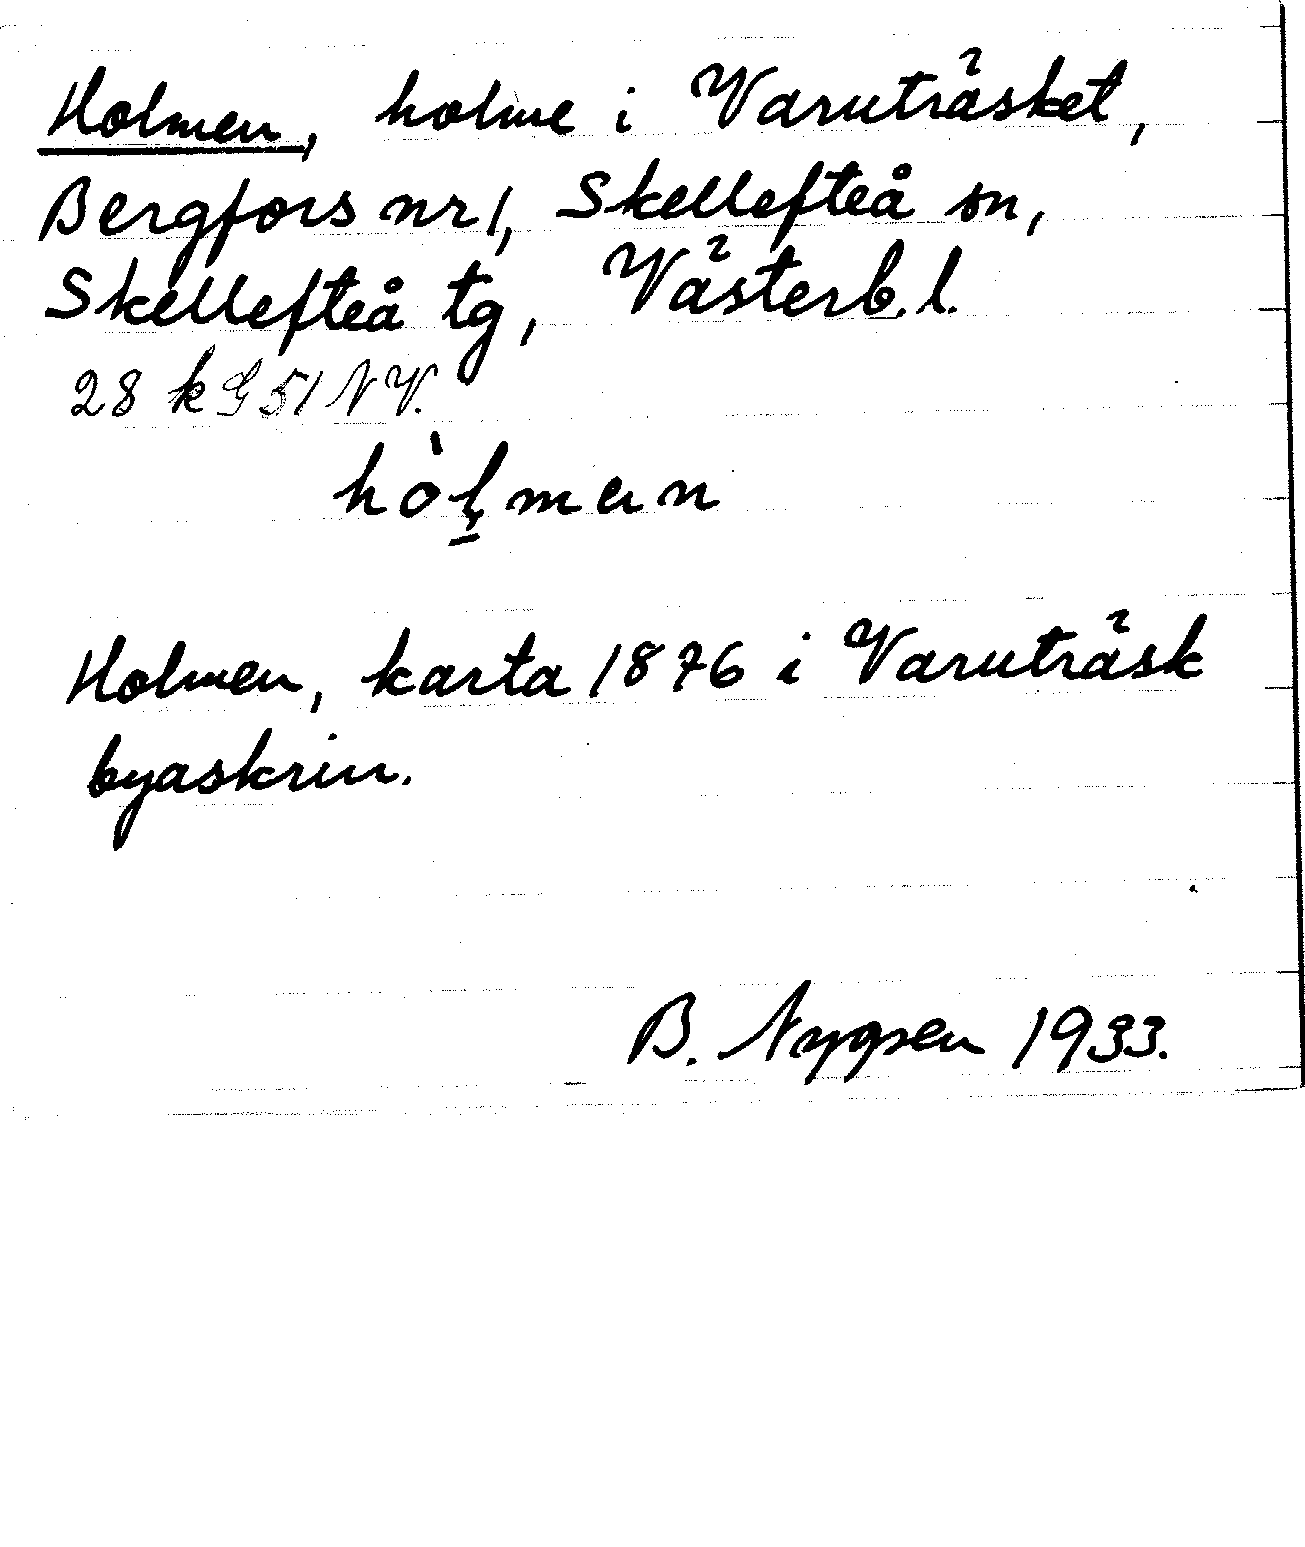 Holmen, holme i Varuträsket,
Bergfors nr 1, Skellefteå sn,
Skellefteå tg, Västerb. l.
28 k G 51 NV.
hòl̥mɐn
Holmen, karta 1876 i Varuträsk
byaskrin.
B. Nygren 1933.